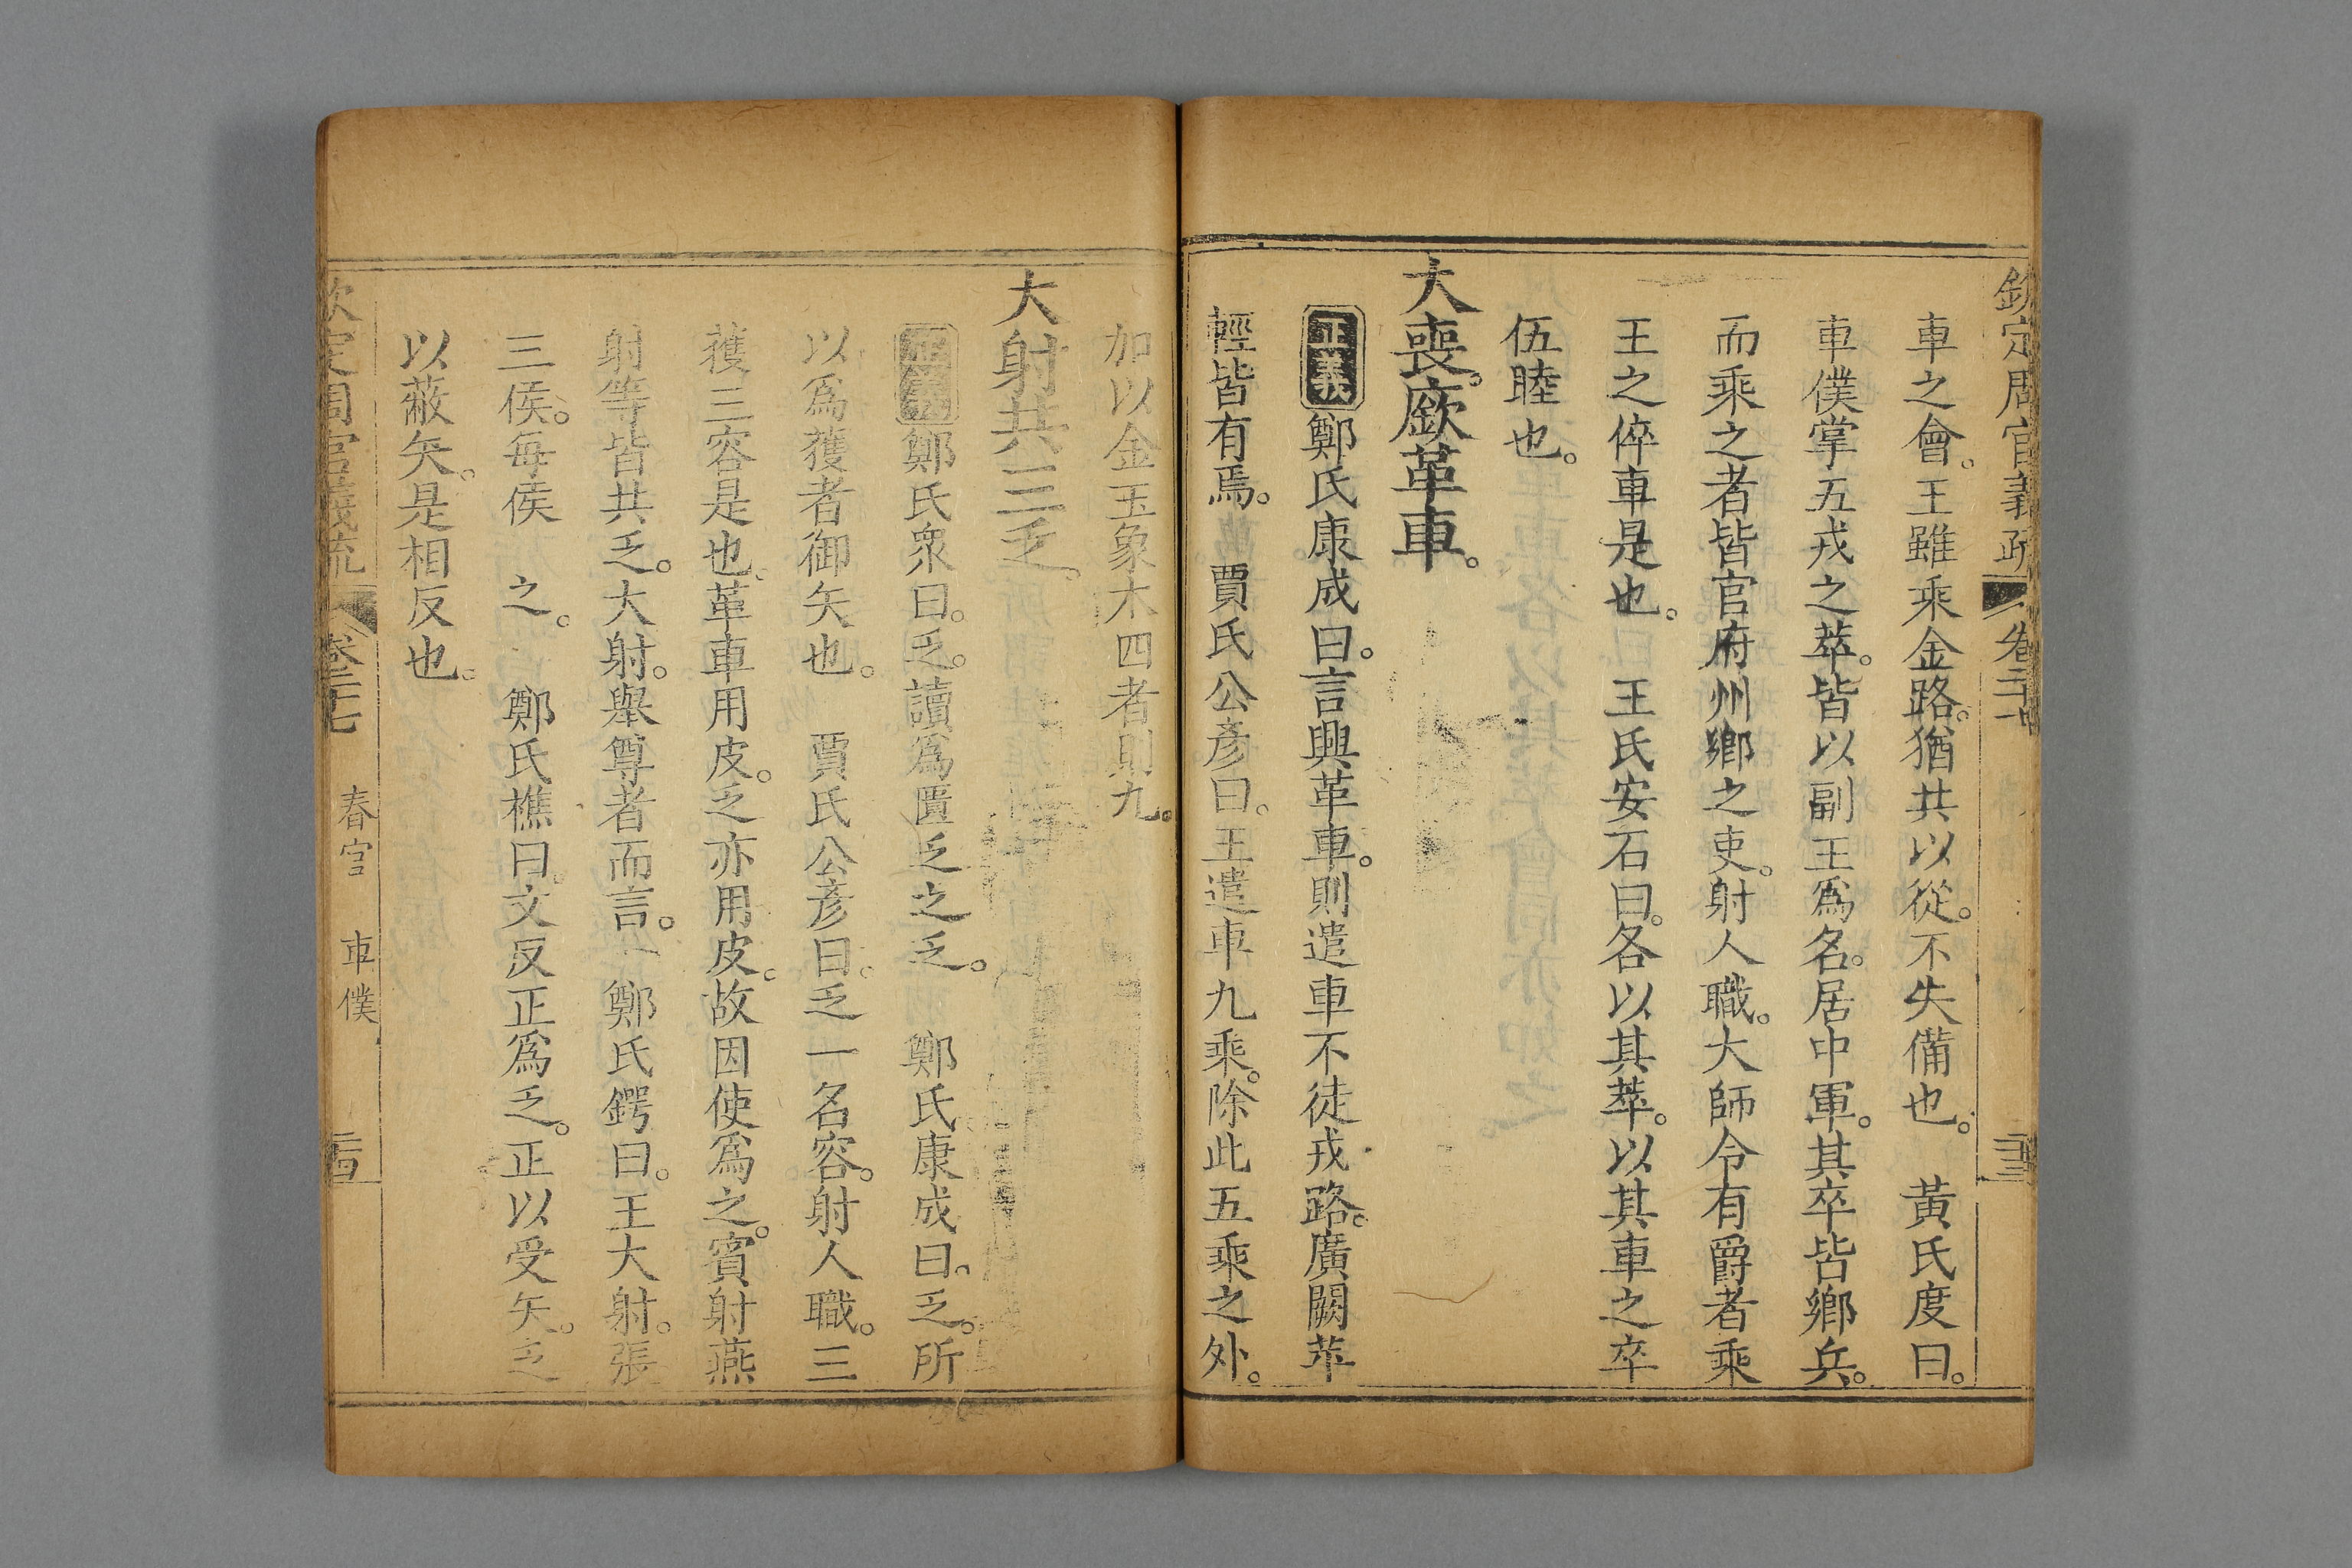 欽定周官義疏 卷二十七 二十三
車之會。王雖乘金路。猶共以從。不失備也。 黃氏度曰。
車僕掌五戎之萃。皆以副王爲名。居中軍。其卒皆鄉兵。
而乘之者皆官府州鄉之吏。射人職。大師令有爵者乘
王之倅車是也。 王氏安石曰。各以其萃。以其車之卒
伍睦也。
大喪。廞革車。
正義 鄭氏康成曰。言興革車。則遣車不徒戎路。廣闕苹
輕皆有焉。 賈氏公彥曰。王遣車九乘。除此五乘之外。
加以金玉象木四者則九。
大射共三乏。
正義 鄭氏衆曰。乏。讀爲匱乏之乏。 鄭氏康成曰。乏。所
以爲獲者御矢也。 賈氏公彥曰。乏一名容。射人職。三
獲三容是也。革車用皮。乏亦用皮。故因使爲之。賓射燕
射等皆共乏。大射。舉尊者而言。 鄭氏鍔曰。王大射。張
三侯。每侯 之。 鄭氏樵曰。文反正爲乏。正以受矢。乏
以蔽矢。是相反也。
欽定周官義疏 卷二十七 春官 車僕 二十四